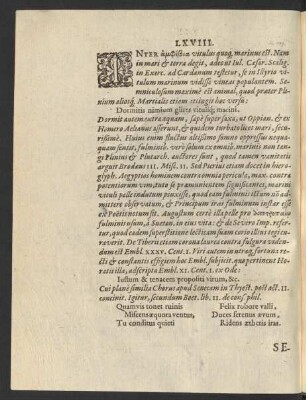 LXVIII.
INTER ἀμφίβια vitulus quoq, marinus est. Nam
in mari & terra degit, adeò ut Iul. Cæsar. Scalig.
in Exerc. ad Cardanum testetur, se in Illyrio vi-
tulum marinum vidisse vineas populantem. So-
mniculosum maximè est animal, quod præter Pli-
nium aliosq, Martialis etiam attigit hoc versu:
Dormitis nimium glires vitulíq; marini.
Dormit autem extra aquam, sæpè super saxa, ut Oppian. & ex
Homero Aelianus asserunt, & quidem turbatus licet mari, secu-
rissimè. Huius enim fluctus altissimo somno oppressus nequa-
quam sentit, fulminib. verò solum ex omnib. marinis non tan-
gi Plinius & Plutarch. auctores sunt, quod tamen vanitatis
arguit Brodæus III. Misc. 11. Sed Pierius etiam docet in hiero-
glyph. Aegyptios hominem contra omnia pericula, max. contra
potentiorum vim, tutò se præmunientem significantes, marini
vituli pelle indutum pinxisse, quod eam fulminis ictum nō ad-
mittere observatum, & Principum iræ fulminum instar esse
ex Poëtis notum sit. Augustum certè illa pelle pro
fulminis usum, à Sueton. in eius vita; & ab Severo Imp. refer-
tur, quod eadem superstitione lecticam suam corio illius tegi cu-
raverit. De Tiberii etiam corona laurea contra fulgura viden-
dum est Embl. XXXV. Cent. 1. Viri autem in utraq, fortuna re-
cti & constantis effigiem hoc Embl. subiicit, quo pertinent Ho-
ratii illa, adscripta Embl. XI. Cent. 1. ex Ode:
Iustum & tenacem propositi virum, &c.
Cui planè similia Chorus apud Senecam in Thyest. post act. II.
concinit. Igitur, secundum Boet. lib. II. de cons. phil.
Quamvis tonet ruinis Felix robore valli,
Miscens æquora ventus, Duces serenus ævum,
Tu conditus quieti Ridens ætheris iras.
SE-